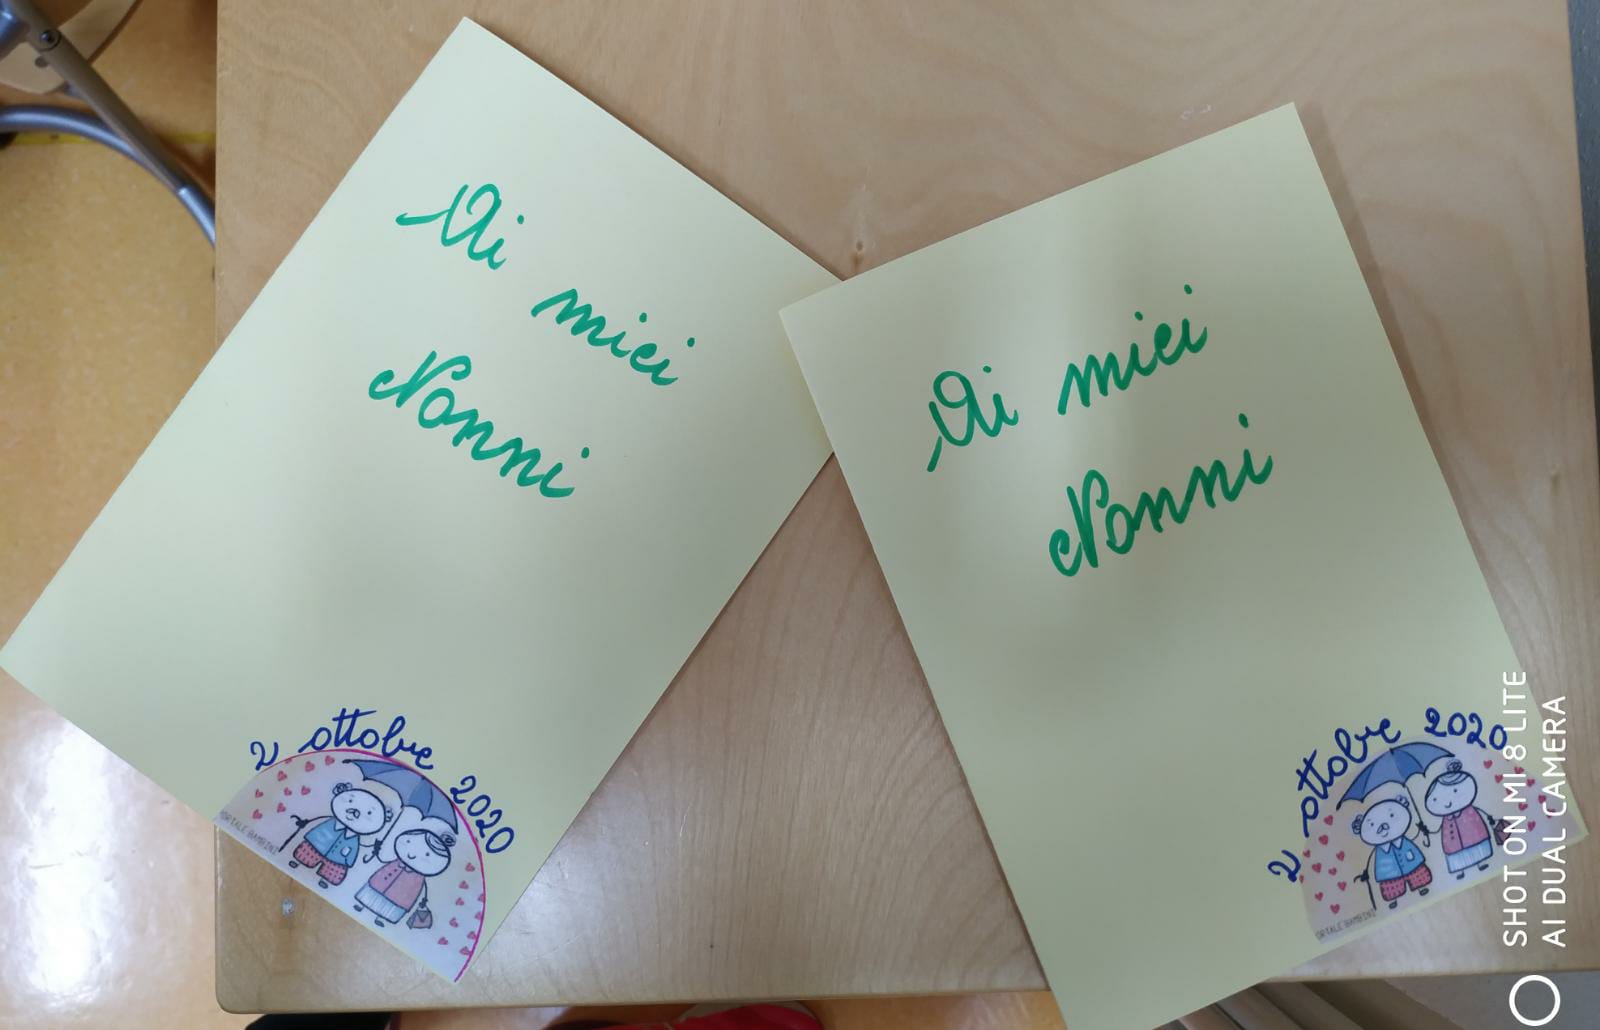 Ai
miei
Nonni
2 ottobre 2020
ORTALE BAMBINI
Ai miei
Nonni
2 ottobre 2020
ORTALE BAMBINI
SHOT ON MI 8 LITE
AI DUAL CAMERA